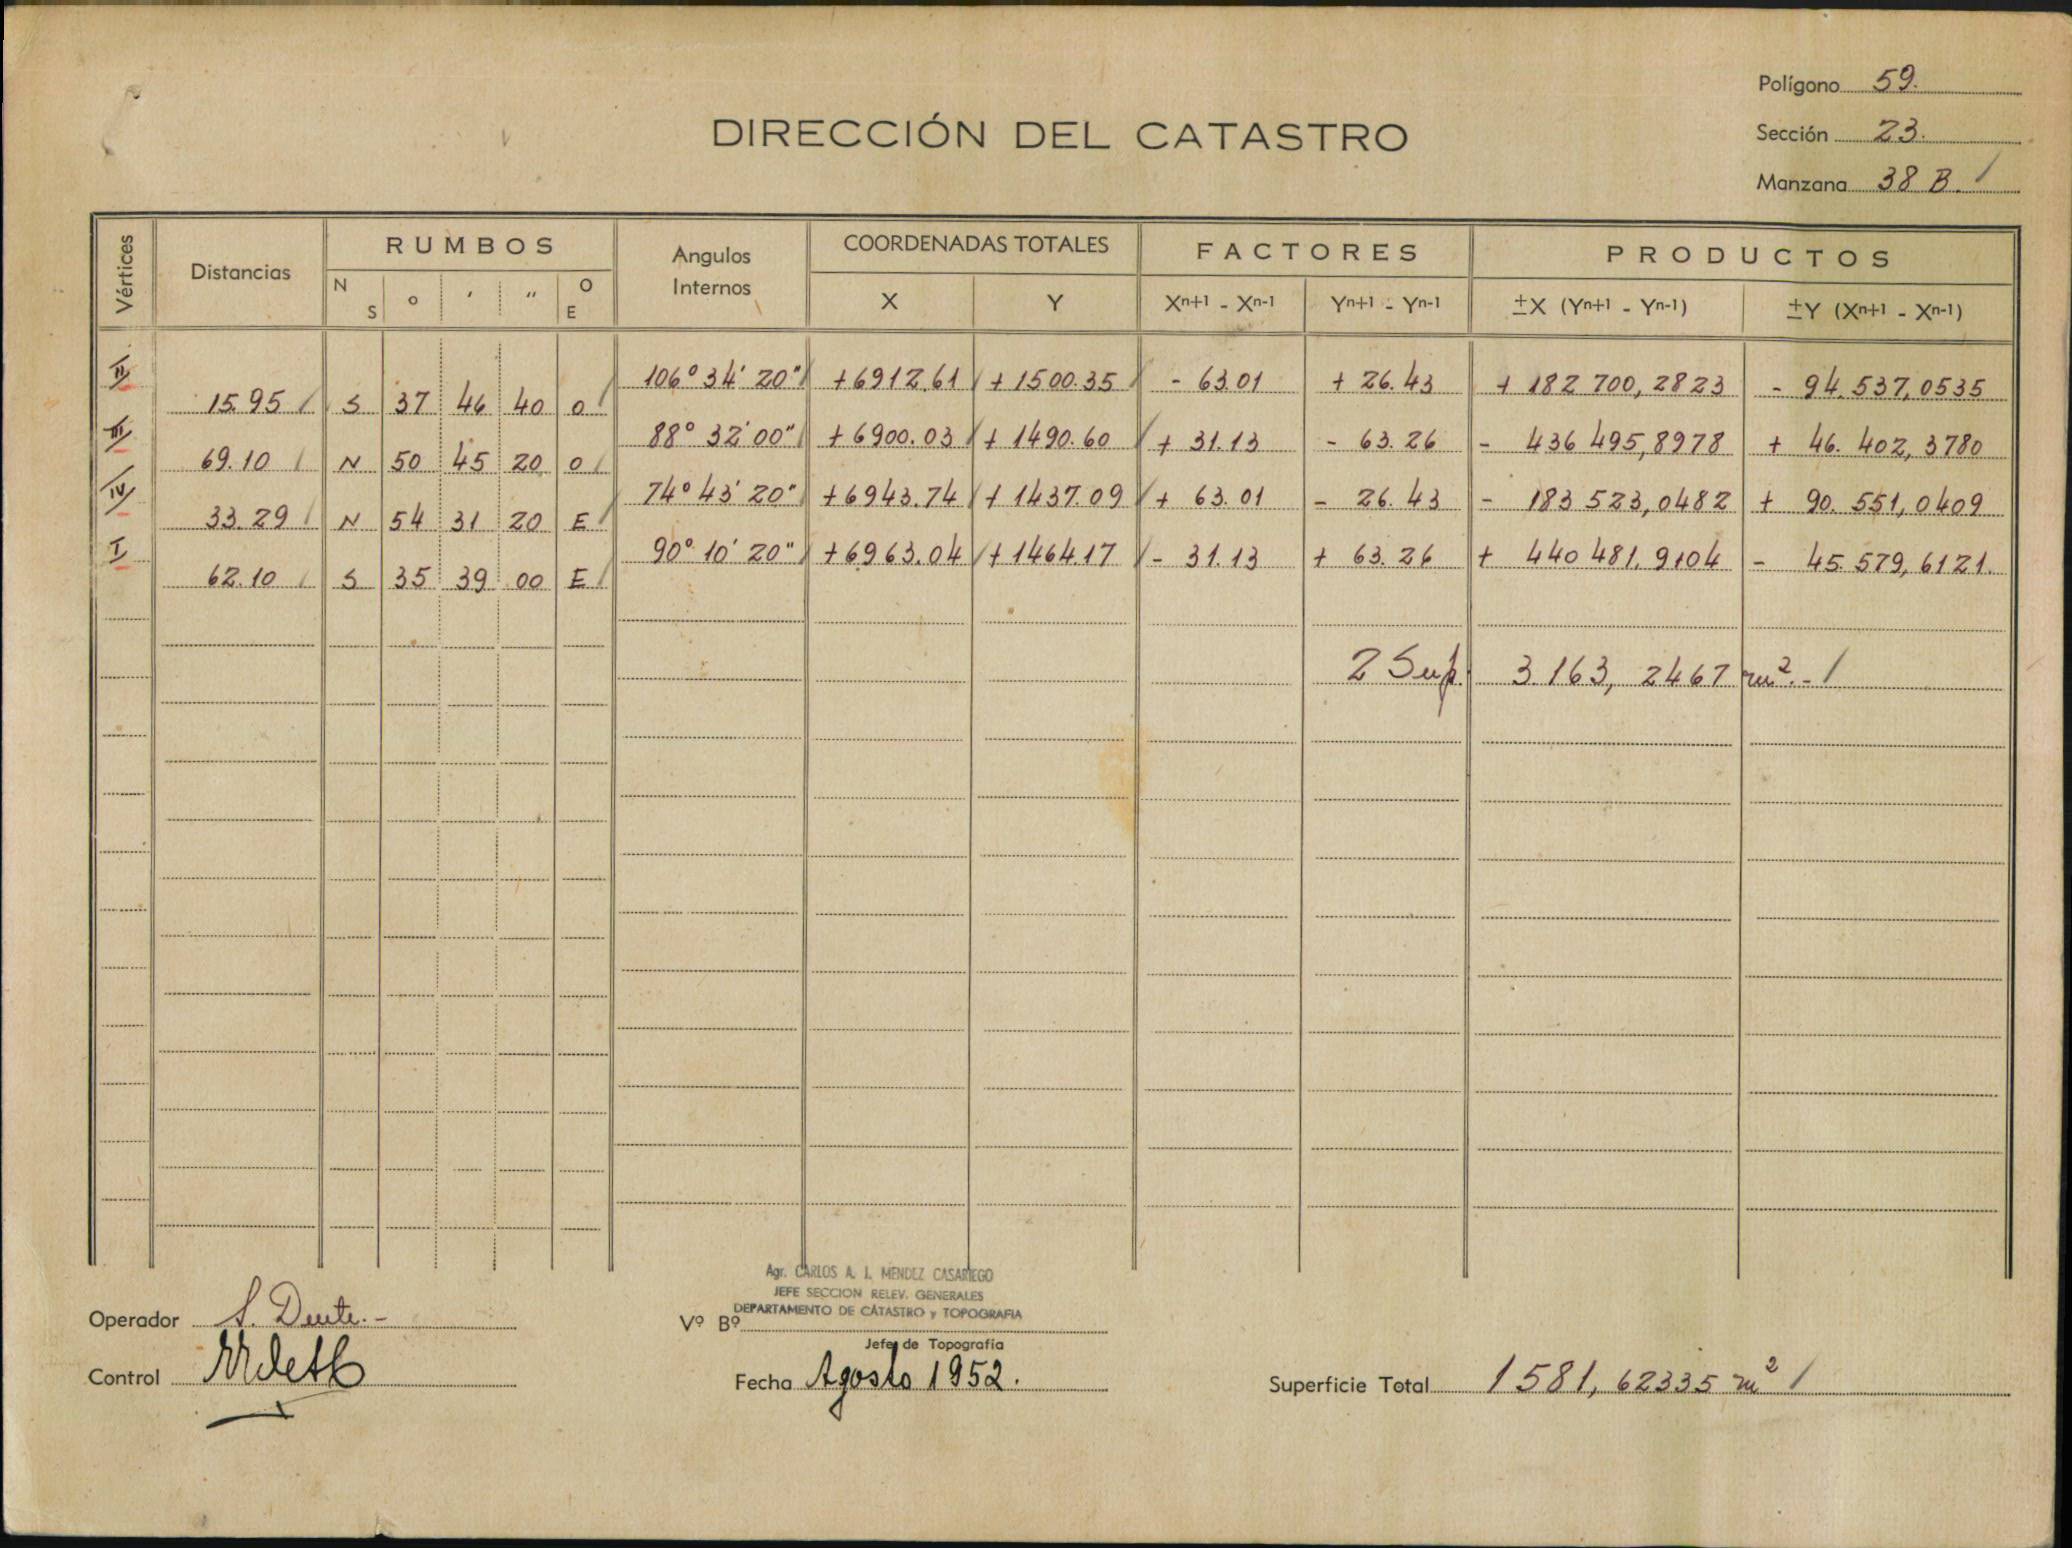 Polígono 59.
DIRECCIÓN DEL CATASTRO
Sección 23.
Manzana 38 B. /
Vértices Distancias RUMBOS Angulos Internos COORDENADAS TOTALES FACTORES PRODUCTOS
N S o ' " O E X Y Xn+1 - Xn-1 Yn+1 - Yn-1 ±X (Yn+1 - Yn-1) ±Y (Xn+1 - Xn-1)
II 106° 34' 20" / +6912.61 / +1500.35 / - 63.01 + 26.43 + 182 700,2823 - 94.537,0535
15.95 / S 37 46 40 O /
III 88° 32' 00" / +6900.03 / + 1490.60 / + 31.13 - 63.26 - 436 495,8978 + 46.402,3780
69.10 / N 50 45 20 O /
IV 74° 43' 20" +6943.74 / + 1437.09 / + 63.01 - 26.43 - 183 523,0482 + 90.551,0409
33.29 / N 54 31 20 E /
I 90° 10' 20" / +6963.04 / +1464.17 / - 31.13 + 63.26 + 440 481,9104 - 45.579,6121.
62.10 / S 35 39 00 E /
2 Sup. 3.163, 2467 m². - /
Agr. CARLOS A. I. MENDEZ CASARIEGO
JEFE SECCION RELEV. GENERALES
DEPARTAMENTO DE CATASTRO y TOPOGRAFIA
Operador
Vº Bº
Jefe de Topografía
Control
Fecha Agosto 1952.
Superficie Total 1581,62335 m² /